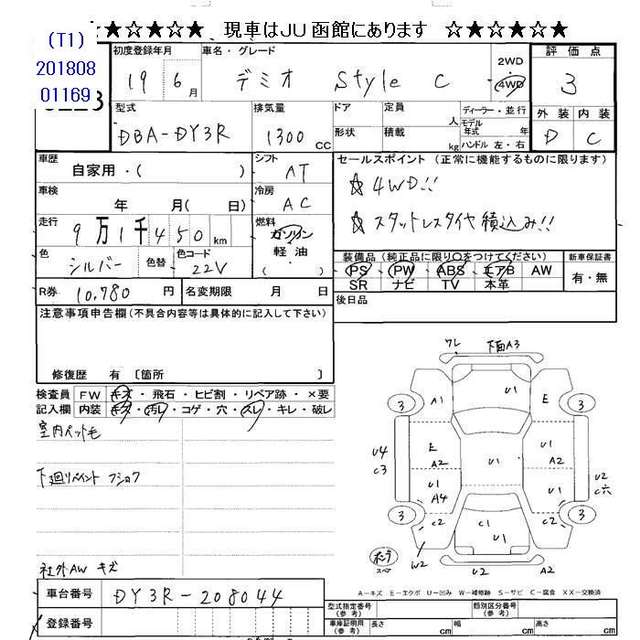 ★☆★☆★ 現車はJU函館にあります ☆★☆★☆★
(T1)
201808
01169
初度登録年月 車名・グレード 2WD 4WD 評価点
19 6月 デミオ Style C 3
型式 排気量 ドア 定員 人 ディーラー・並行 外装 内装
DBA-DY3R 1300 CC 形状 積載 kg モデル年式 年式 ハンドル 左・右 D C
車歴 自家用・( ) シフト AT セールスポイント (正常に機能するものに限ります)
車検 年 月( 日) 冷房 AC ☆ 4WD!!
走行 9万1千450km 燃料 ガソリン 軽油 ( ) ☆ スタットレスタイヤ積込み!!
色 シルバー 色替 色コード 22V 装備品(純正品に限り○をつけてください) 新車保証書
PS・PW・ABS・エアB・AW 有・無
SR ナビ TV 本革
R券 10,780 円 名変期限 月 日 後日品
注意事項申告欄(不具合内容等は具体的に記入して下さい)
修復歴 有 〔箇所 〕
検査員 FW キズ・飛石・ヒビ割・リペア跡・×要
記入欄 内装 キズ・汚レ・コゲ・穴・スレ・キレ・破レ
室内ペット毛
下廻りペイント フショク
社外AW キズ
ワレ 下面A3
U1
3 A1 E 3
U4 C3 E A2 U1 U1 A2
U1 A4 U1 U2
3 C2 C1 U1 C2 3
W2 U2 A2
スペア
A－キズ E－エクボ U－凹み W－補修跡 S－サビ C－腐食 XX－交換済
車台番号 DY3R-208044
登録番号
型式指定番号(参考) 類別区分番号(参考)
車庫証明用(参考) 長さ cm 幅 cm 高さ cm